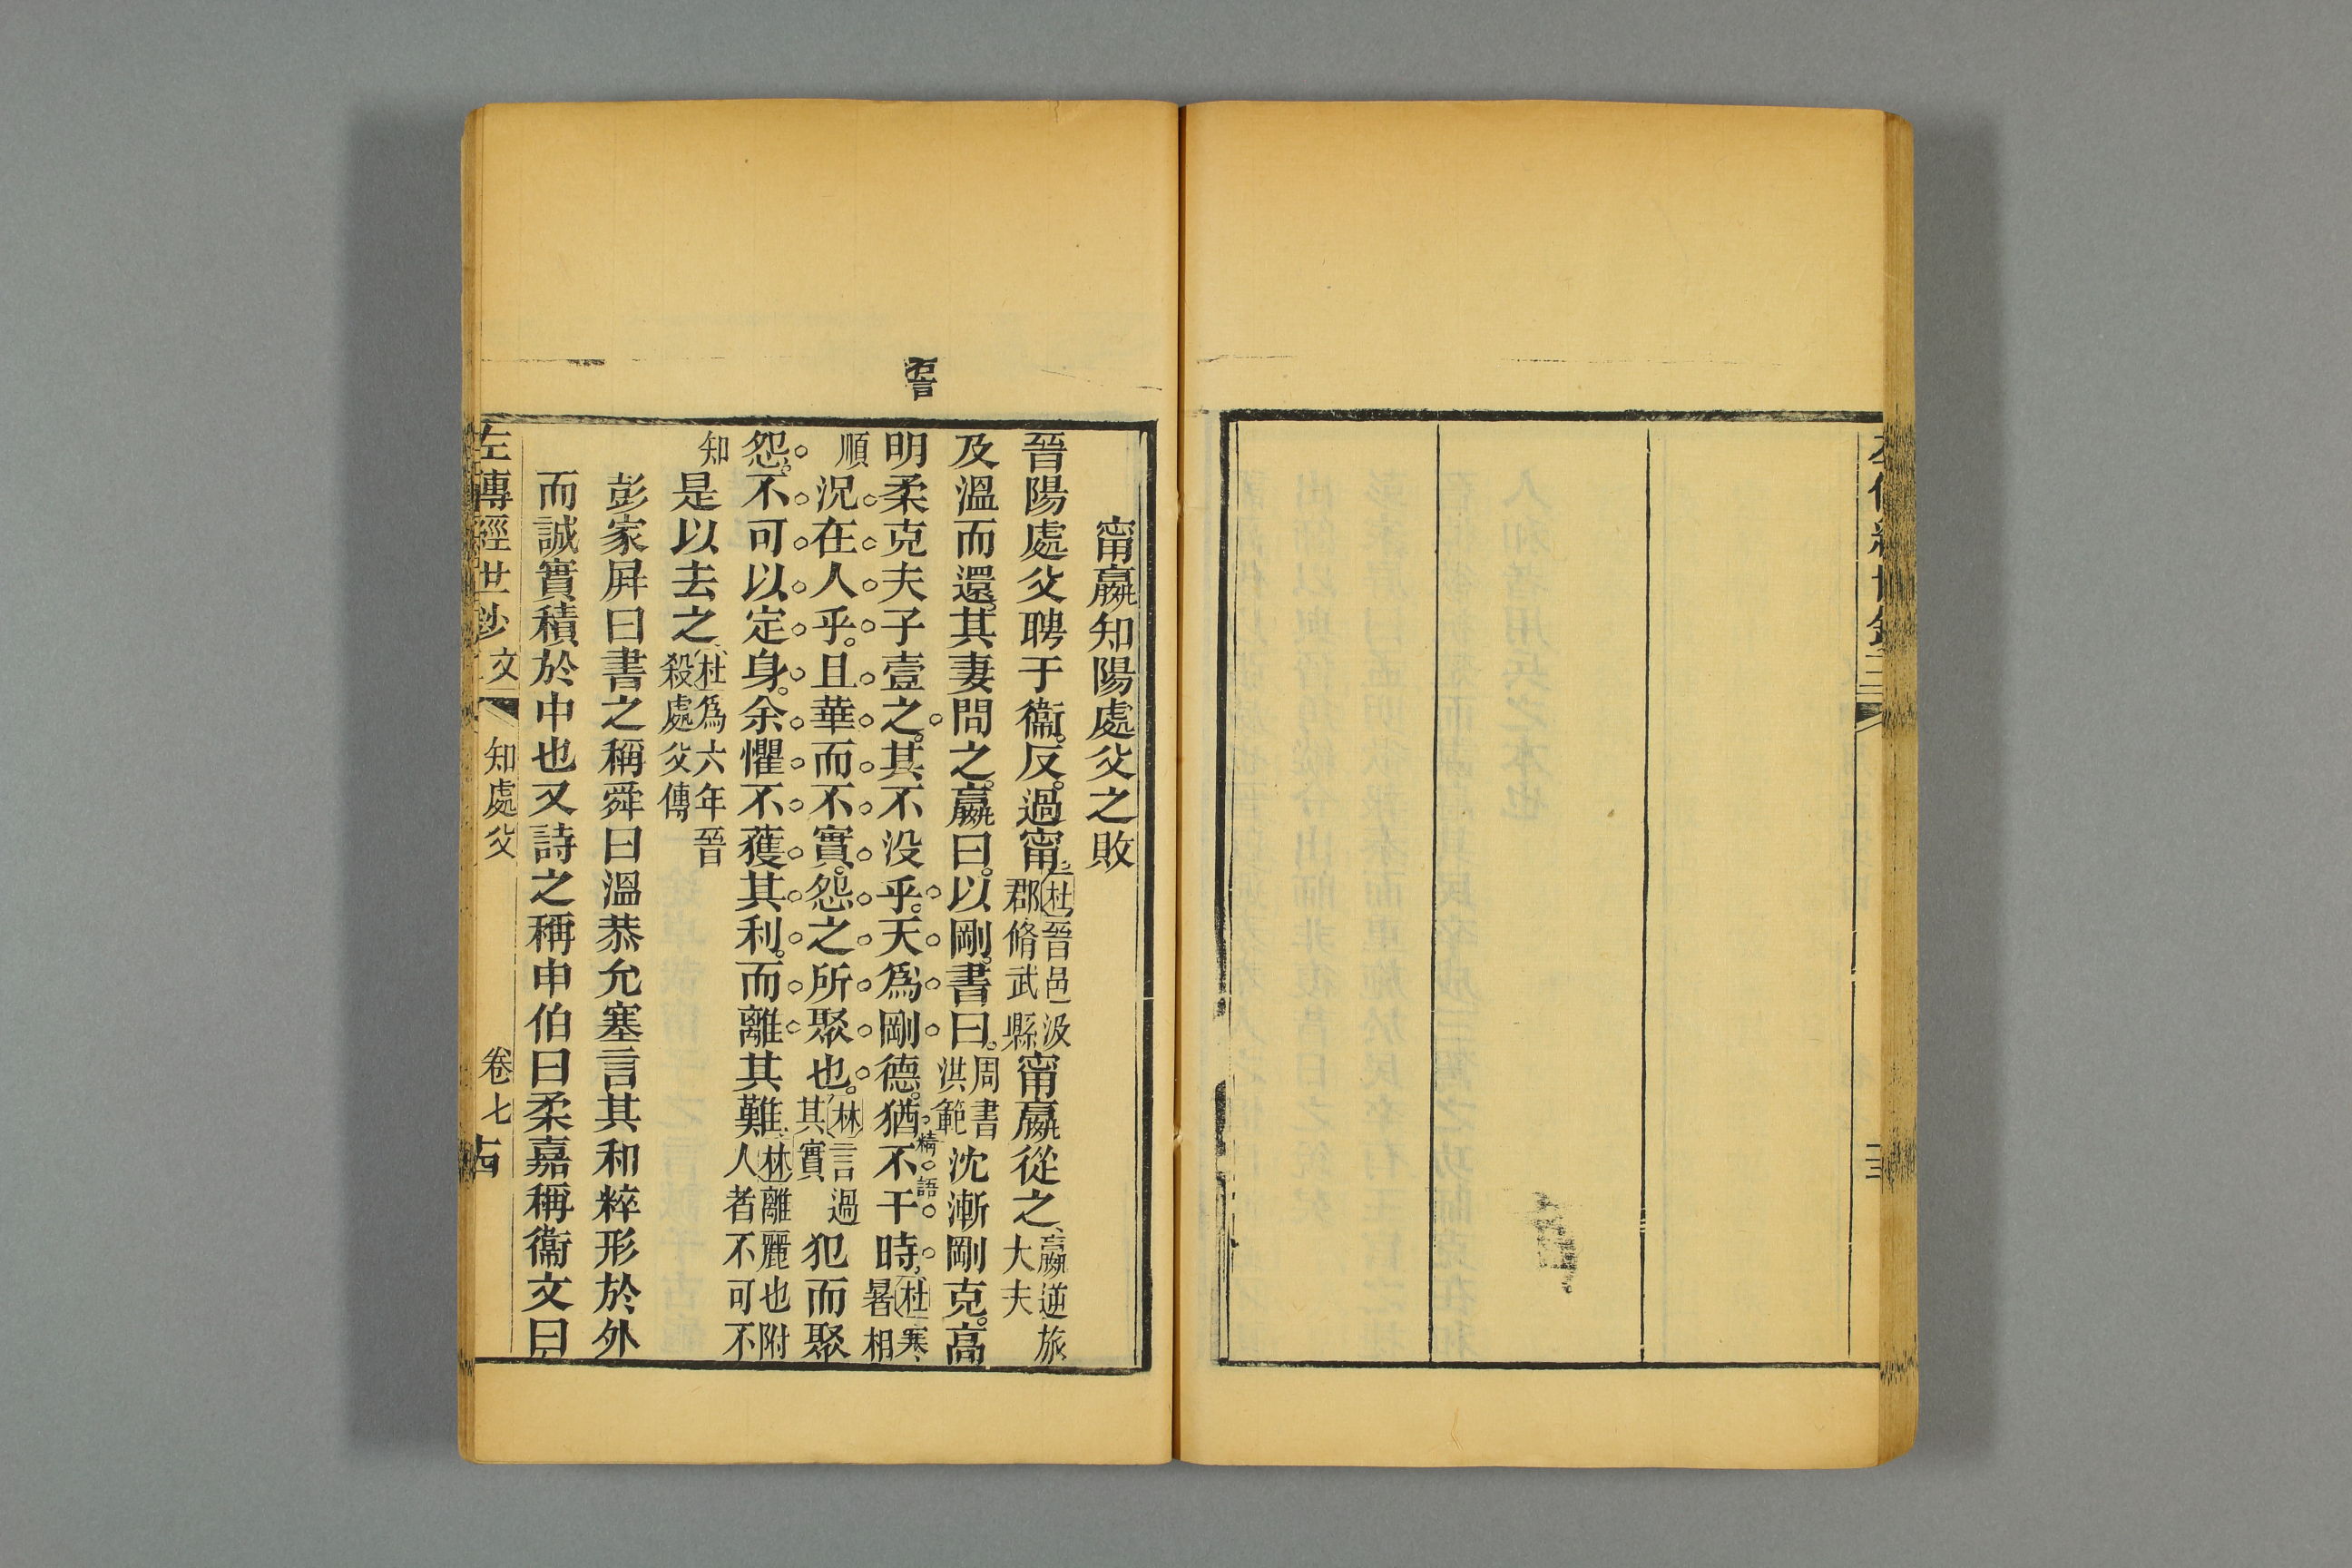 甯嬴知陽處父之敗
晉陽處父聘于衞。反。過甯杜晉邑汲郡脩武縣甯嬴從之嬴逆旅大夫
及溫而還。其妻問之。嬴曰。以剛。書曰。周書洪範沈漸剛克。高
明柔克夫子壹之。其不没乎。天爲剛德。猶不干時。杜寒暑相
精語
順況在人乎。且華而不實。怨之所聚也。林言過其實犯而聚
怨。不可以定身。余懼不獲其利。而離其難林離麗也附人者不可不
知是以去之杜爲六年晉殺處父傳
彭家屛曰書之稱舜曰溫恭允塞言其和粹形於外
而誠實積於中也又詩之稱申伯曰柔嘉稱衞文曰
左傳經世鈔 文 知處父 卷七